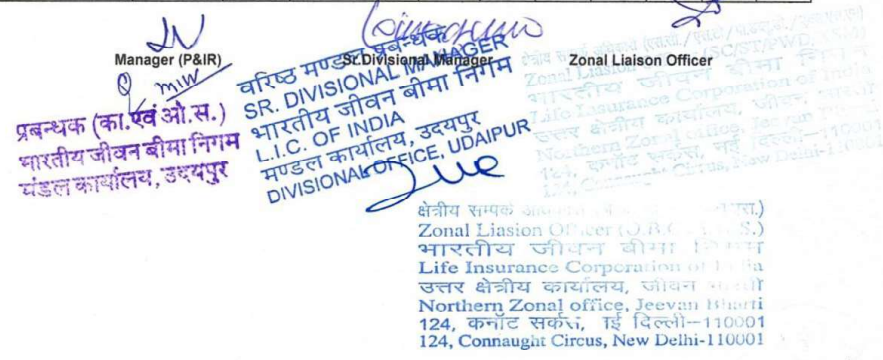 Manager (P&IR)
Sr.Divisional Manager
Zonal Liaison Officer
प्रबन्धक (का.एवं औ.स.)
भारतीय जीवन बीमा निगम
मंडल कार्यालय, उदयपुर
वरिष्ठ मण्डल प्रबन्धक
SR. DIVISIONAL MANAGER
भारतीय जीवन बीमा निगम
L.I.C. OF INDIA
मण्डल कार्यालय, उदयपुर
DIVISIONAL OFFICE, UDAIPUR
क्षेत्रीय सम्पर्क
Zonal Liasion Officer (SC/ST/PWD,
भारतीय जीवन बीमा निगम
Life Insurance Corporation of India
उत्तर क्षेत्रीय कार्यालय, जीवन भारती
Northern Zonal office, Jeevan
124, कनॉट सर्कस, नई दिल्ली-110001
124, Connaught Circus, New Delhi-110001
क्षेत्रीय सम्पर्क
Zonal Liasion Officer (O.B.C.
भारतीय जीवन बीमा निगम
Life Insurance Corporation of India
उत्तर क्षेत्रीय कार्यालय, जीवन भारती
Northern Zonal office, Jeevan Bharti
124, कनॉट सर्कस, नई दिल्ली-110001
124, Connaught Circus, New Delhi-110001